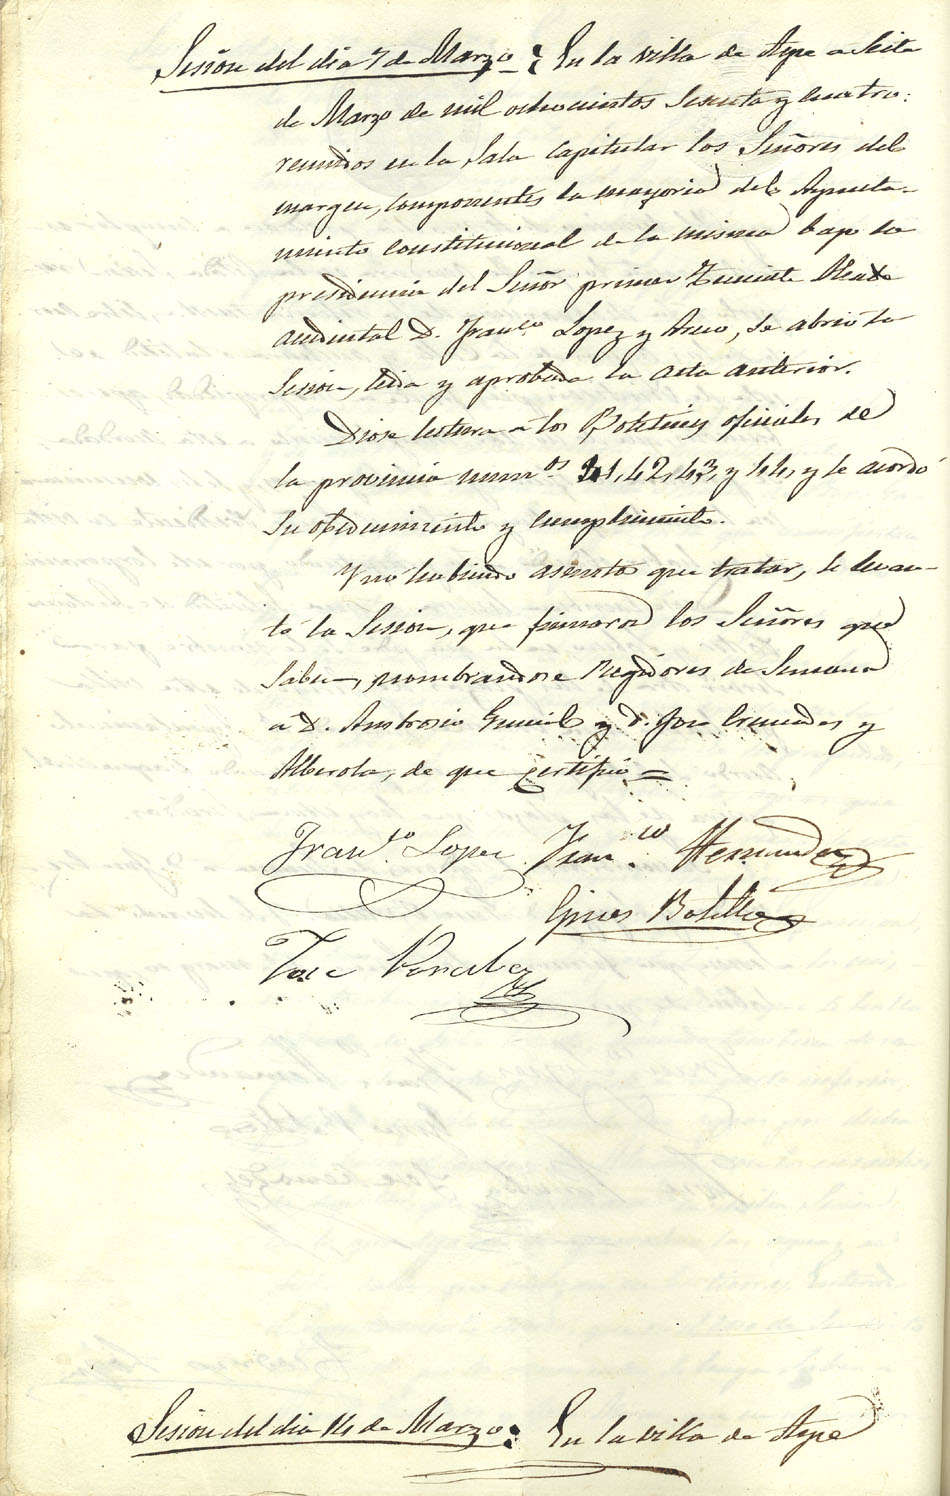 Sesion del dia 7 de Marzo: En la villa de Aspe a Siete
de Marzo de mil ochocientos Sesenta y cuatro:
reunidos en la Sala Capitular los Señores del
margen, componentes la mayoria del Ayunta-
miento constitucional de la misma bajo la
presidencia del Señor primer Teniente Alcalde
accidental D. Franco. Lopez y Azco, se abrió la
Sesion, leida y aprobada la acta anterior.
Diose lectura a los Boletines oficiales de
la provincia numos. 41, 42, 43, y 44, y se acordó
su obedecimiento y cumplimiento.
Y no habiendo asunto que tratar, se levan-
tó la Sesion, que firmaron los Señores que
saben, nombrandose Regidores de Semana
a D. Ambrosio Gumiel y D. Jose Cremades y
Alberola, de que certifico =
Franco. Lopez Franco. Hernandez
Gines Botella
Jose
Sesion del dia 14 de Marzo: En la villa de Aspe